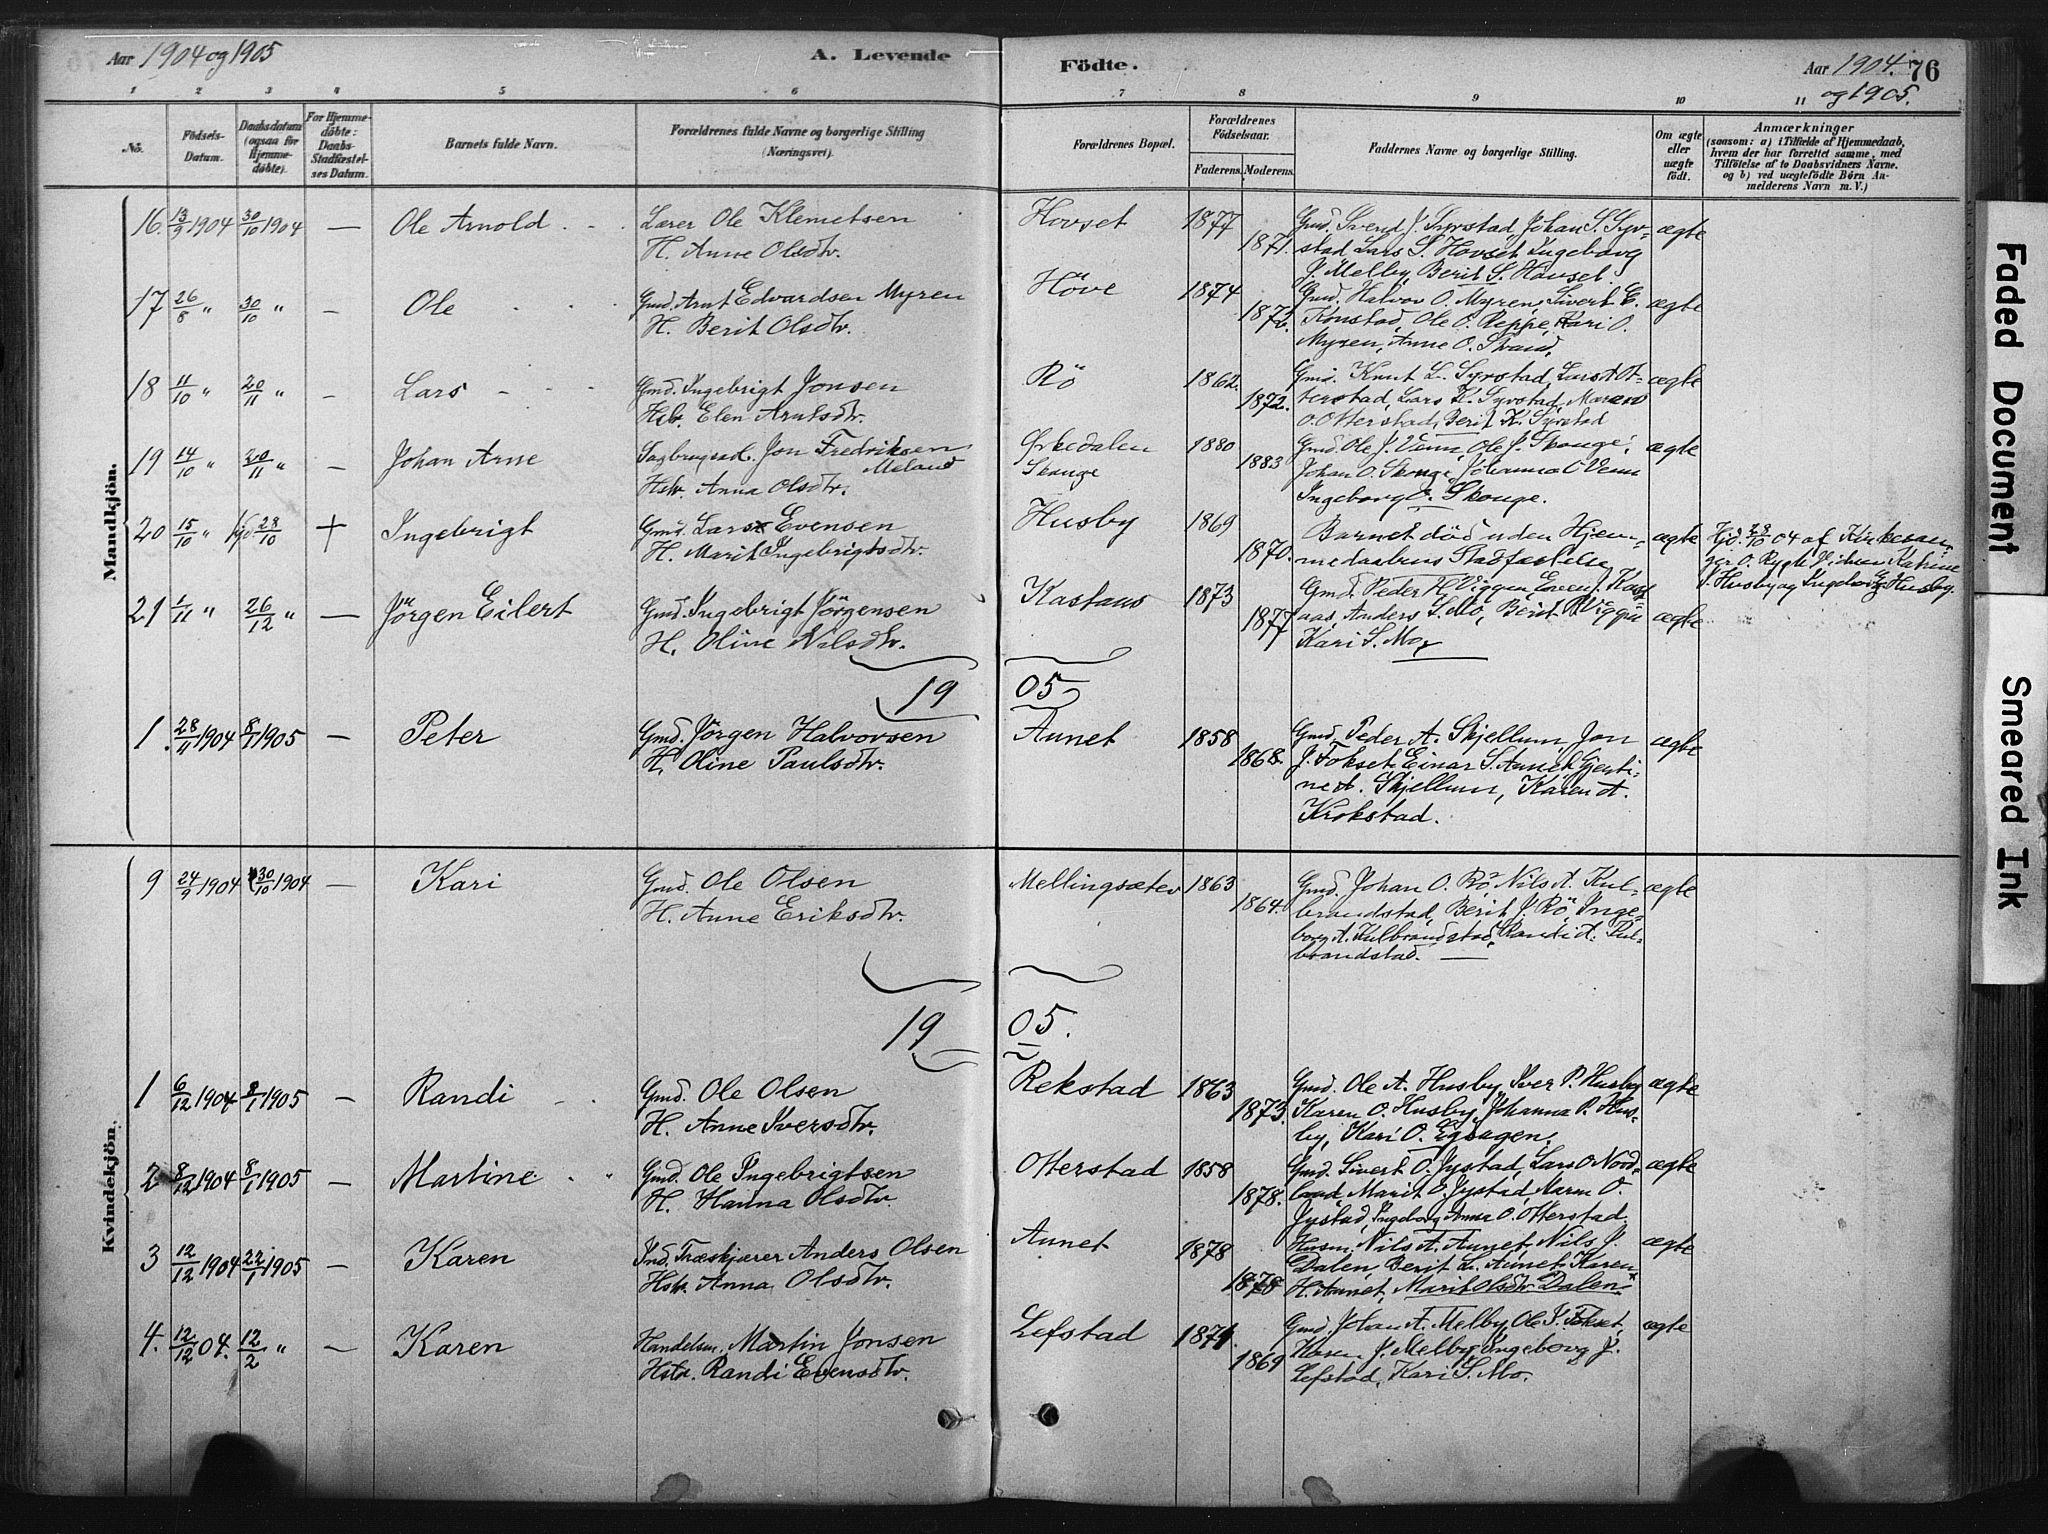 Aar 1904 og 1905
A. Levende
Födte.
Aar 1904. 76
og 1905.
1 2 3 4 5 6 7 8 9 10 11
Nö.
Födsels-Datum.
Daabsdatum (ogsaa for Hjemmedöbte).
For Hjemmedöbte: Daabs-Stadfæstelses Datum.
Barnets fulde Navn.
Forældrenes fulde Navne og borgerlige Stilling (Næringsvei).
Forældrenes Bopæl.
Forældrenes Födselsaar.
Faderens. Moderens.
Faddernes Navne og borgerlige Stilling.
Om ægte eller uægte födt.
Anmærkninger
(saasom: a) i Tilfælde af Hjemmedaab,
hvem der har forrettet samme, med
Tilföielse af to Daabsvidners Navne.
og b) ved uægtefödte Börn An-
melderens Navn m.V.)
Mandkjön.
16. 13/9 1904 30/10 1904 — Ole Arnold
Lærer Ole Klemetsen
H. Anne Olsdtr.
Hovset 1877 1871.
Gmd. Svend J. Syrstad, Johan S. Syr-
stad, Lars S. Hovset, Ingeborg
J. Melby, Berit S. Hovset.
ægte
17 26/8 " 30/10 " — Ole
Gmd. Arnt Edvardsen Myren
H. Berit Olsdtr.
Höve 1874 1872.
Gmd. Halvor O. Myren, Sivert E.
Konstad, Ole O. Reppe, Kari O.
Myren, Anne O. Strand.
ægte
18 11/10 " 20/11 " — Lars
Gmd. Ingebrigt Jonsen
Hstr. Elen Arntsdtr.
Rö 1862. 1872.
Gmd. Knut L. Syrstad, Lars A. Ot-
terstad, Lars K. Syrstad, Maren
O. Otterstad, Berit K. Syrstad
ægte
19 14/10 " 20/11 " — Johan Arne
Sagbrugsarb. Jon Fredriksen
Meland
Hstr. Anna Olsdtr.
Ørkedalen
Skauge
1880 1883
Gmd. Ole J. Venn, Ole J. Skauge,
Johan O. Skauge, Johanna O. Venn
Ingeborg O. Skauge.
ægte
20 15/10 " Hjd. 28/10 + Ingebrigt
Gmd. Lars Evensen
H. Marit Ingebrigtsdtr.
Husby 1869 1870.
Barnet död uden Hjem-
medaabens Stadfæstelse
ægte
Hjd. 28/10 04 af Kirkesan-
ger O. Rygh. Vidner Katrine
Husby og Ingeborg Husby.
21 1/11 " 26/12 " — Jörgen Eilert
Gmd. Ingebrigt Jörgensen
H. Oline Nilsdtr.
Kastaas 1873 1877
Gmd. Peder H. Viggen, Even J. Kast-
aas, Anders S. Mo, Berit P. Viggen
Kari S. Mo,
ægte
19 05
1. 28/11 1904 8/1 1905 — Peter
Gmd. Jörgen Halvorsen
H. Oline Paulsdtr.
Aunet 1858 1868.
Gmd. Peder A. Skjellum, Jon
J. Fokset, Einar S. Aunet, Gjerti-
ne A. Skjellum, Karen A.
Krokstad.
ægte
Kvindekjön.
9 24/9 1904 30/10 1904 — Kari
Gmd. Ole Olsen
H. Anne Eriksdtr.
Mellingsæter 1863 1864.
Gmd. Johan O. Rö, Nils A. Kul-
brandstad, Berit J. Rö, Inge-
borg A. Kulbrandstad, Randi A. Kul-
brandstad.
ægte
19 05.
1 6/12 1904 8/1 1905 — Randi
Gmd. Ole Olsen
H. Anne Iversdtr.
Rekstad 1863 1873.
Gmd. Ole A. Husby, Iver P. Husby
Karen O. Husby, Johanna P. Hus-
by, Kari O. Eghagen.
ægte
2 8/12 1904 8/1 1905 — Martine
Gmd. Ole Ingebrigtsen
H. Hanna Olsdtr.
Otterstad 1858 1878.
Gmd. Sivert O. Jystad, Lars O. Nord-
land, Marit O. Jystad, Maren O.
Jystad, Ingeborg Anna O. Otterstad.
ægte
3 12/12 1904 22/1 1905 — Karen
Ind. Træskjærer Anders Olsen
Hstr. Anna Olsdtr.
Aunet 1878 1878
Husm. Nils A. Aunet, Nils J.
Dalen, Berit L. Aunet, Karen
H. Aunet, Marit Olsdtr. Dalen
ægte
4. 12/12 04. 12/2 " — Karen
Handelsm. Martin Jonsen
Hstr. Randi Evensdtr.
Lefstad 1871 1869
Gmd. Johan A. Melby, Ole P. Fokset,
J. Melby, Ingeborg J.
Lefstad, Kari S. Mo.
ægte
Faded Document
Smeared Ink